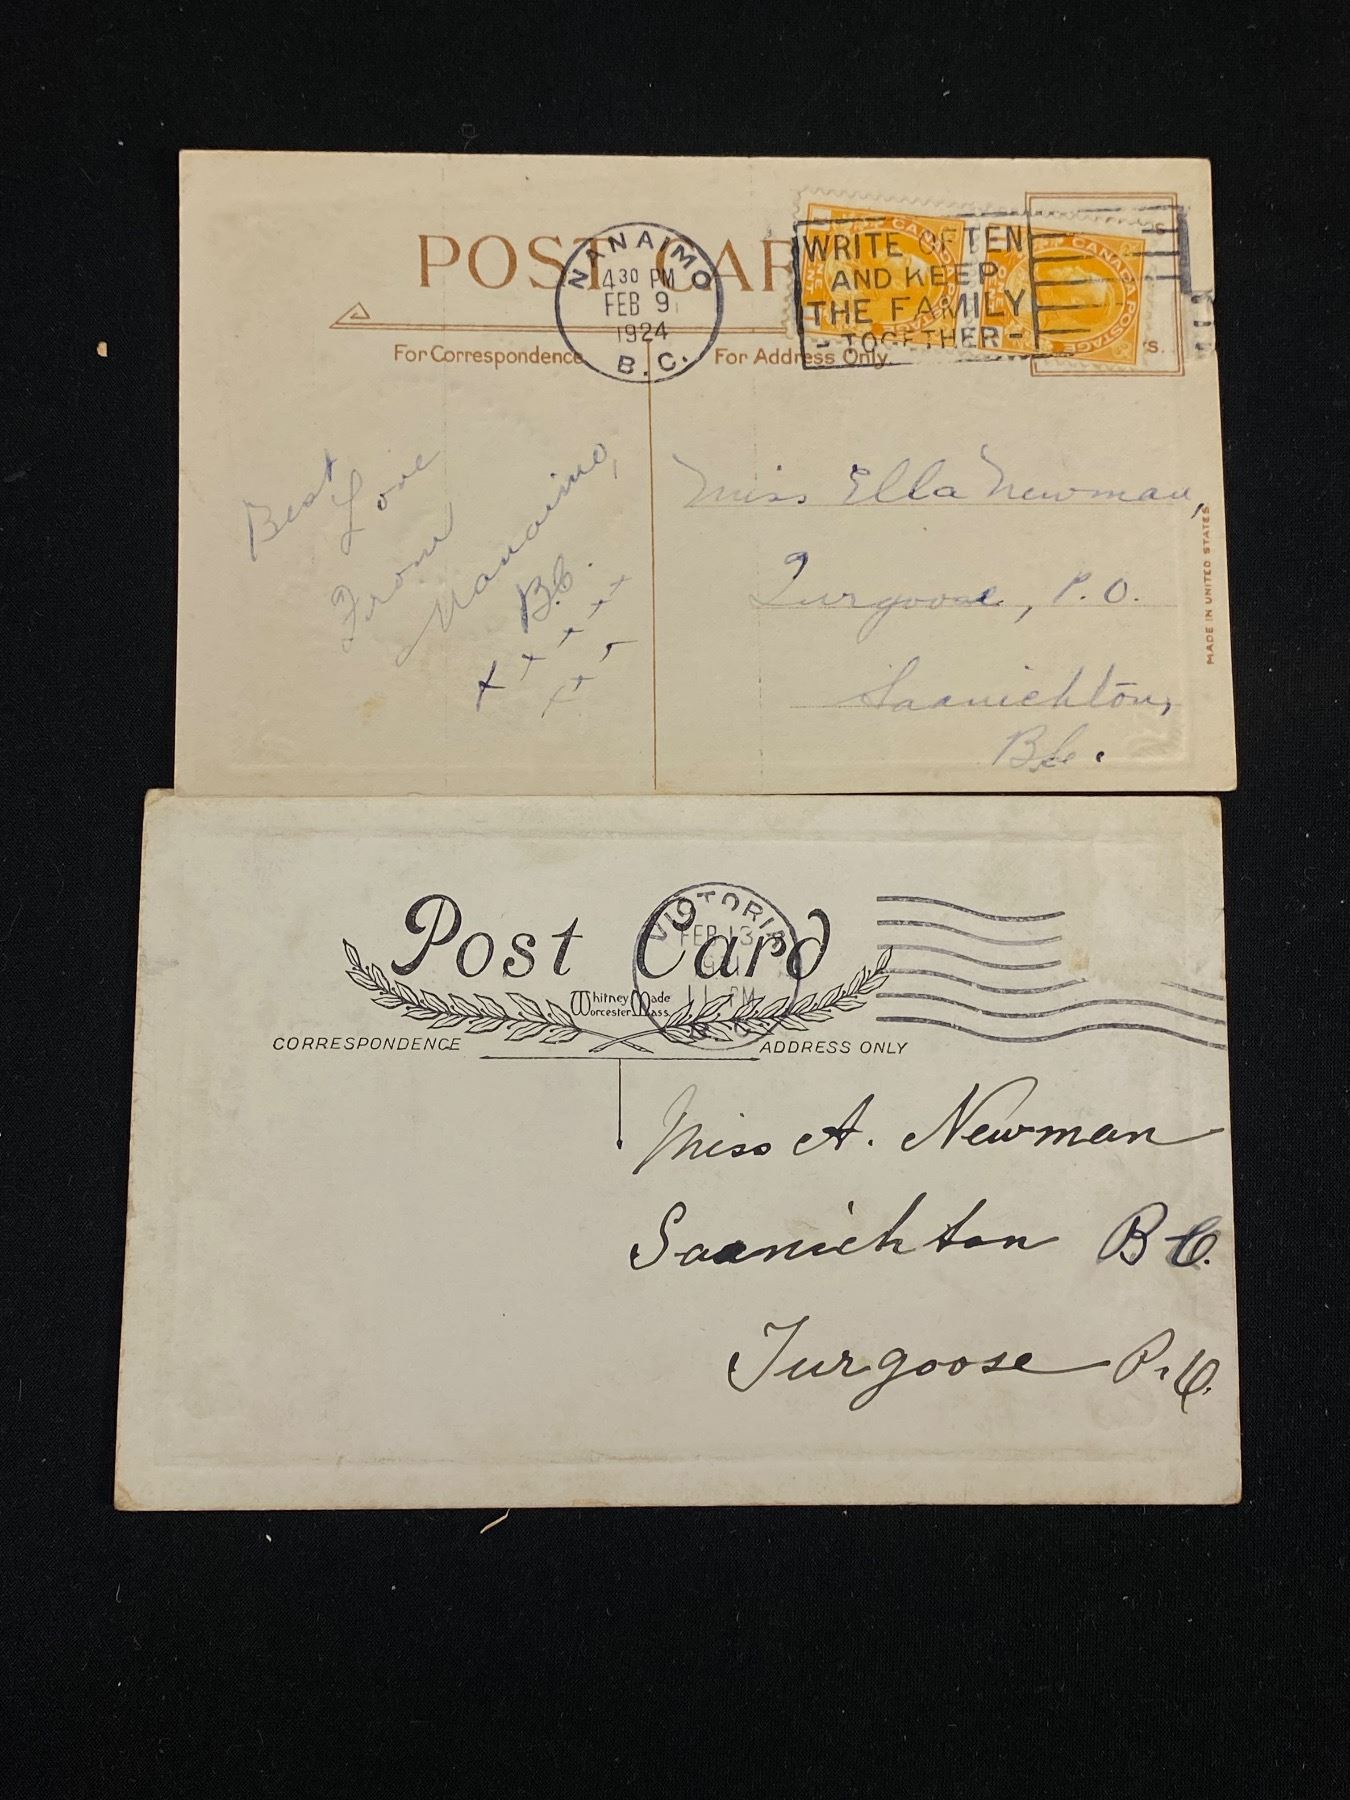 POST CARD
NANAIMO
4 30 PM
FEB 9
1924
B.C.
WRITE OFTEN
AND KEEP
THE FAMILY
- TOGETHER -
CANADA POSTAGE
For Correspondence
For Address Only
Best
Love
From
Nanaimo,
B.C.
x x x x x
x x
Miss Ella Newman,
Turgoose, P.O.
Saanichton,
B.C.
MADE IN UNITED STATES
Post Card
VICTORIA
FEB 13
11 PM
Whitney Made
Worcester Mass.
CORRESPONDENCE
ADDRESS ONLY
Miss A. Newman
Saanichton B C.
Turgoose P.O.